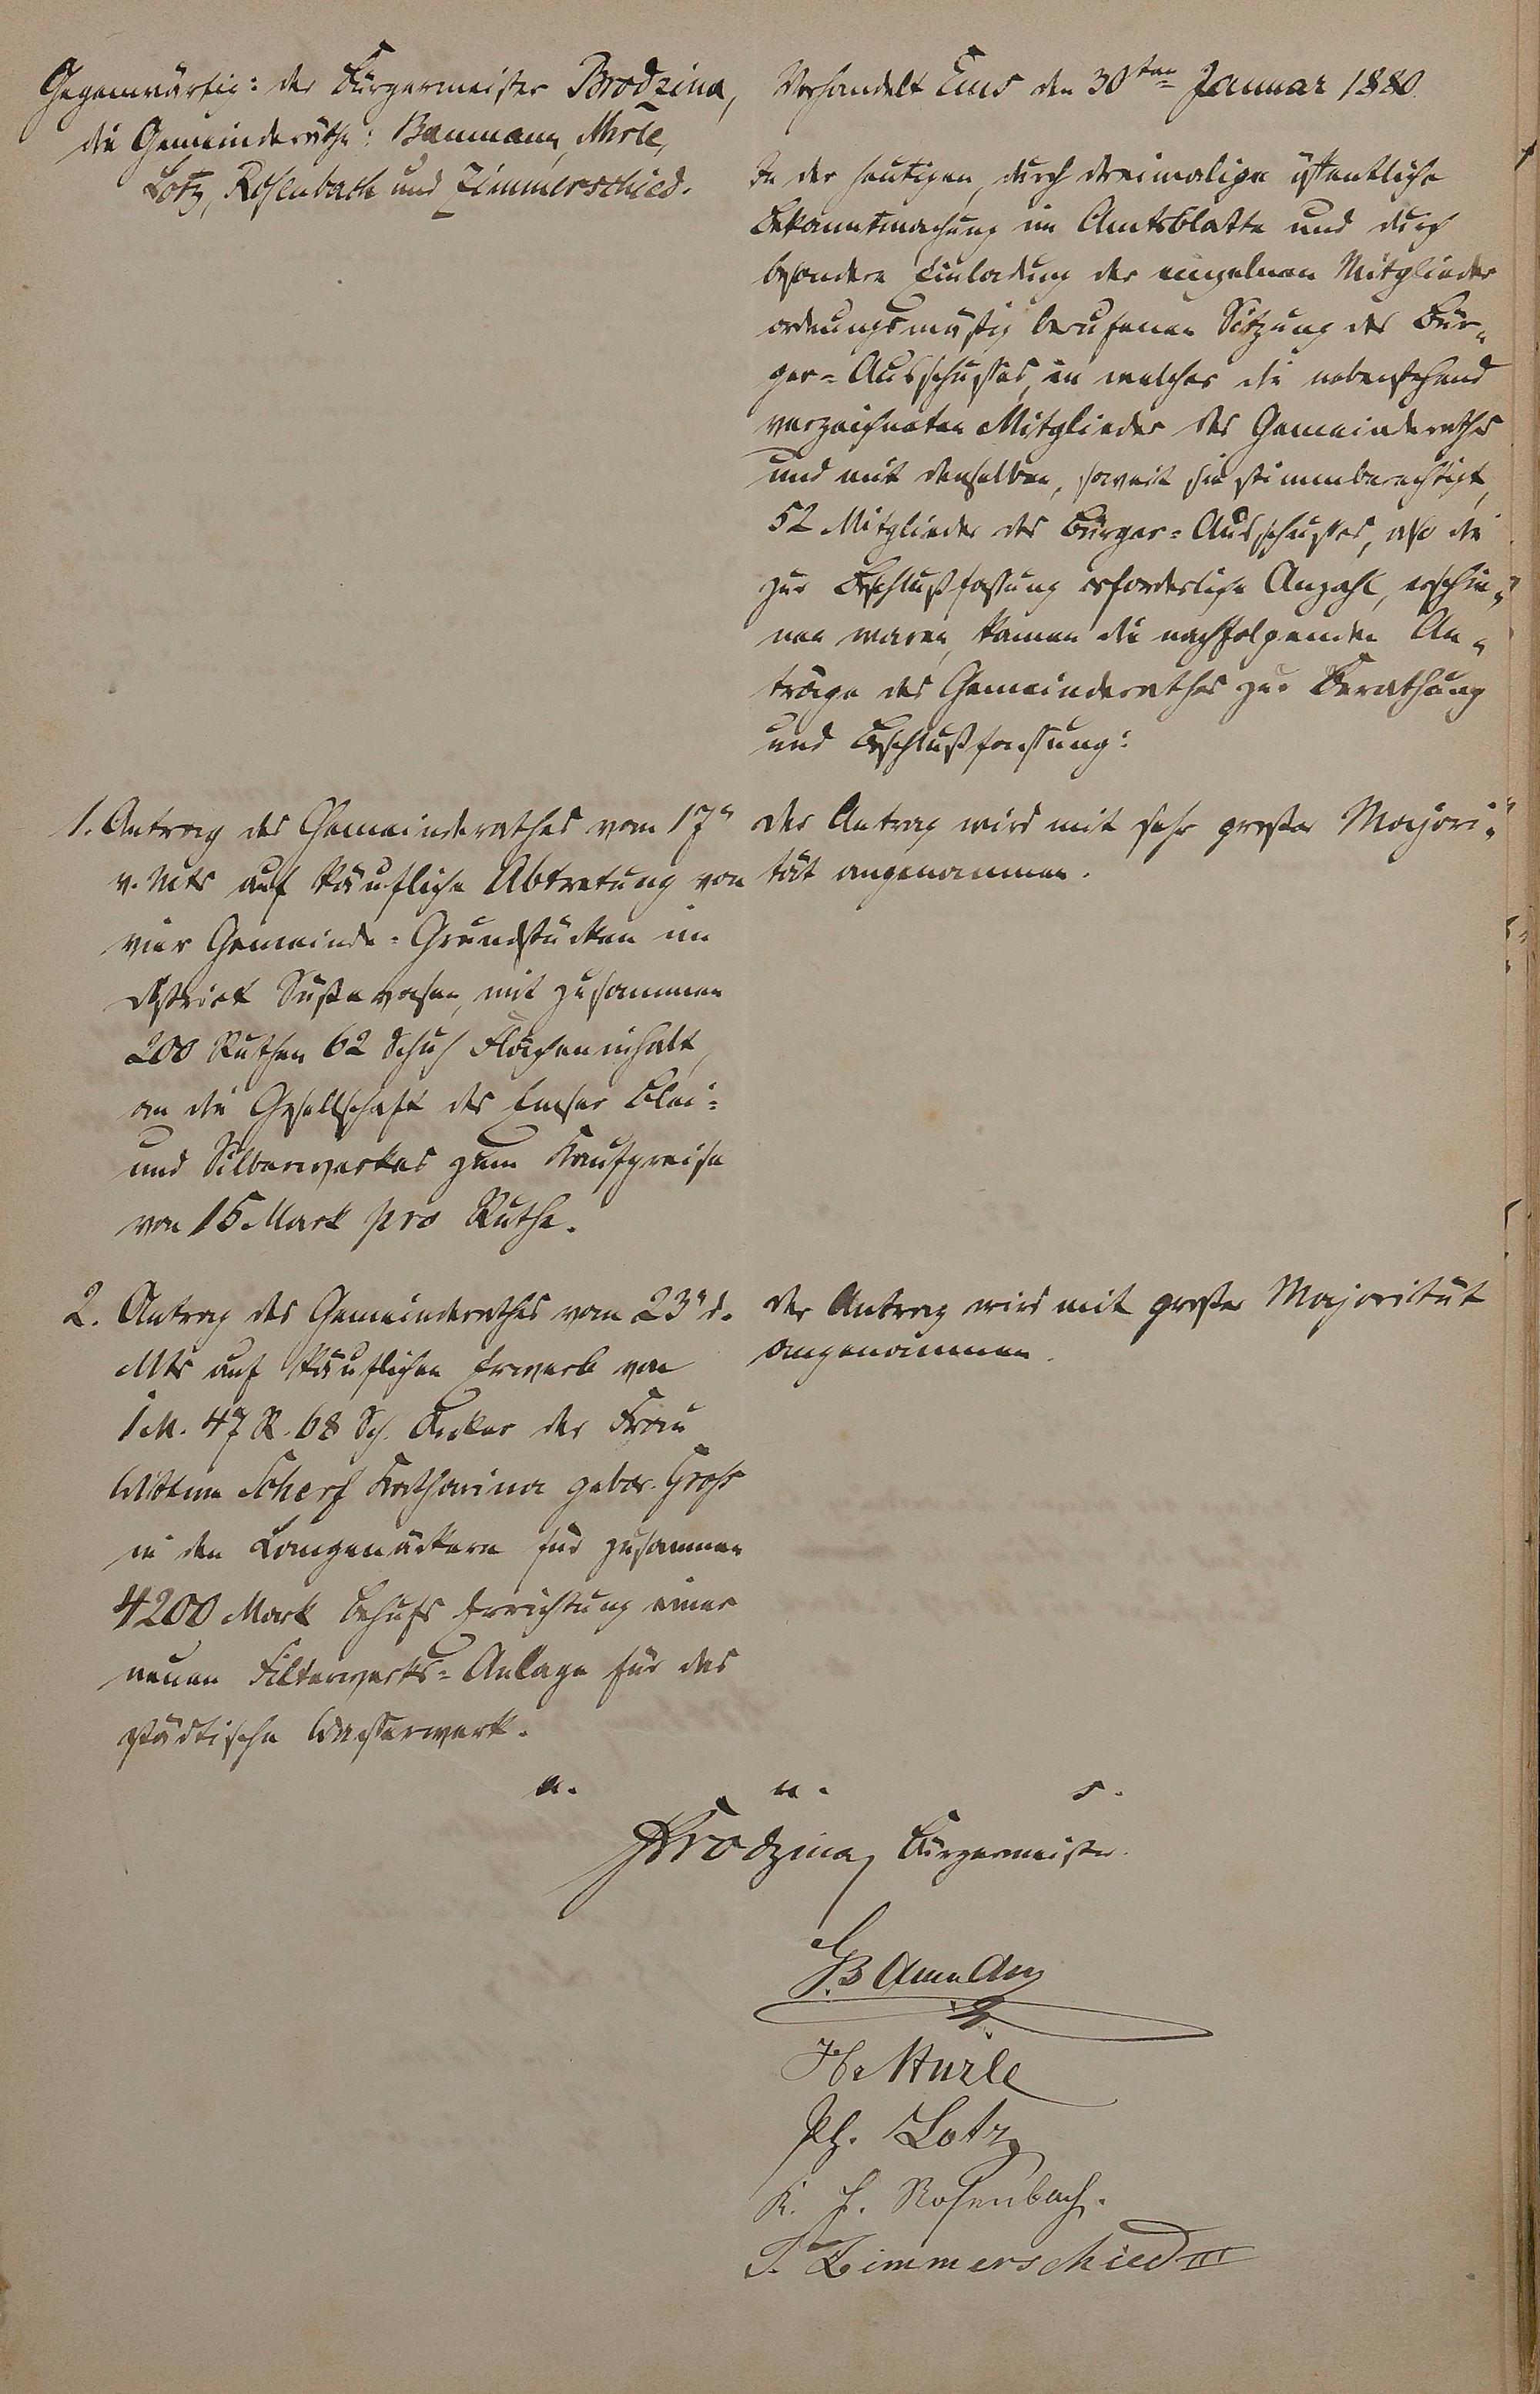 Gegenwärtig: der Bürgermeister Brodzina,
die Gemeinderäthe: Baumann,
Lotz, Rosenbach und Zimmerschied.
Verhandelt Ems den 30ten Januar 1880.
In der heutigen, durch dreimalige öffentliche
Bekanntmachung im Amtsblatte und durch
besondere Einladung der einzelnen Mitglieder
ordnungsmäßig berufenen Sitzung des Bür-
ger-Ausschusses, in welcher die nebenstehend
verzeichneten Mitglieder des Gemeinderathes
und mit denselben, soweit sie stimmberechtigt,
52 Mitglieder des Bürger-Ausschusses, also die
zur Beschlußfassung erforderliche Anzahl, erschie-
nen waren, kamen die nachfolgenden An-
träge des Gemeinderathes zur Berathung
und Beschlußfassung:
1. Antrag des Gemeinderathes vom 17n
v. Mts auf käufliche Abtretung von
vier Gemeinde-Grundstücken im
District mit zusammen
200 Ruthen 62 Schuh Flächeninhalt,
an die Gesellschaft des Emser Blei-
und Silberwerkes zum Kaufpreise
von 15 Mark pro Ruthe.
Der Antrag wird mit sehr großer Majori-
tät angenommen.
2. Antrag des Gemeinderathes vom 23n d.
Mts auf käuflichen Erwerb von
1 M. 47 R. 68 Sch. Acker der Frau
Wittwe Scherf Katharina gebor. Groß
in den Langenäckern für zusammen
4200 Mark behufs Errichtung einer
neuen Filterwerks-Anlage für das
städtische Wasserwerk.
Der Antrag wird mit großer Majorität
angenommen.
a. u. s.
Brodzina, Bürgermeister.
Baumann
Ph. Lotz
K. F. Rosenbach.
Zimmerschied III